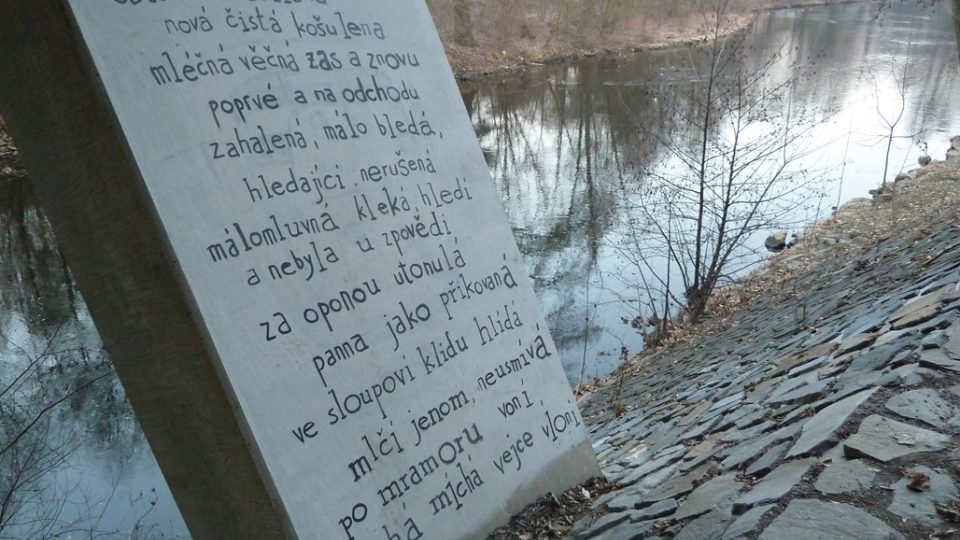 nová čistá košulena
mléčná věčná zas a znovu
poprvé a na odchodu
zahalená, málo bledá,
hledající nerušená
málomluvná kleká, hledí
a nebyla u zpovědi
za oponou utonulá
panna jako přikovaná
ve sloupoví klidu hlídá
mlčí jenom, neusmívá
po mramoru voní,
míchá vejce vloni